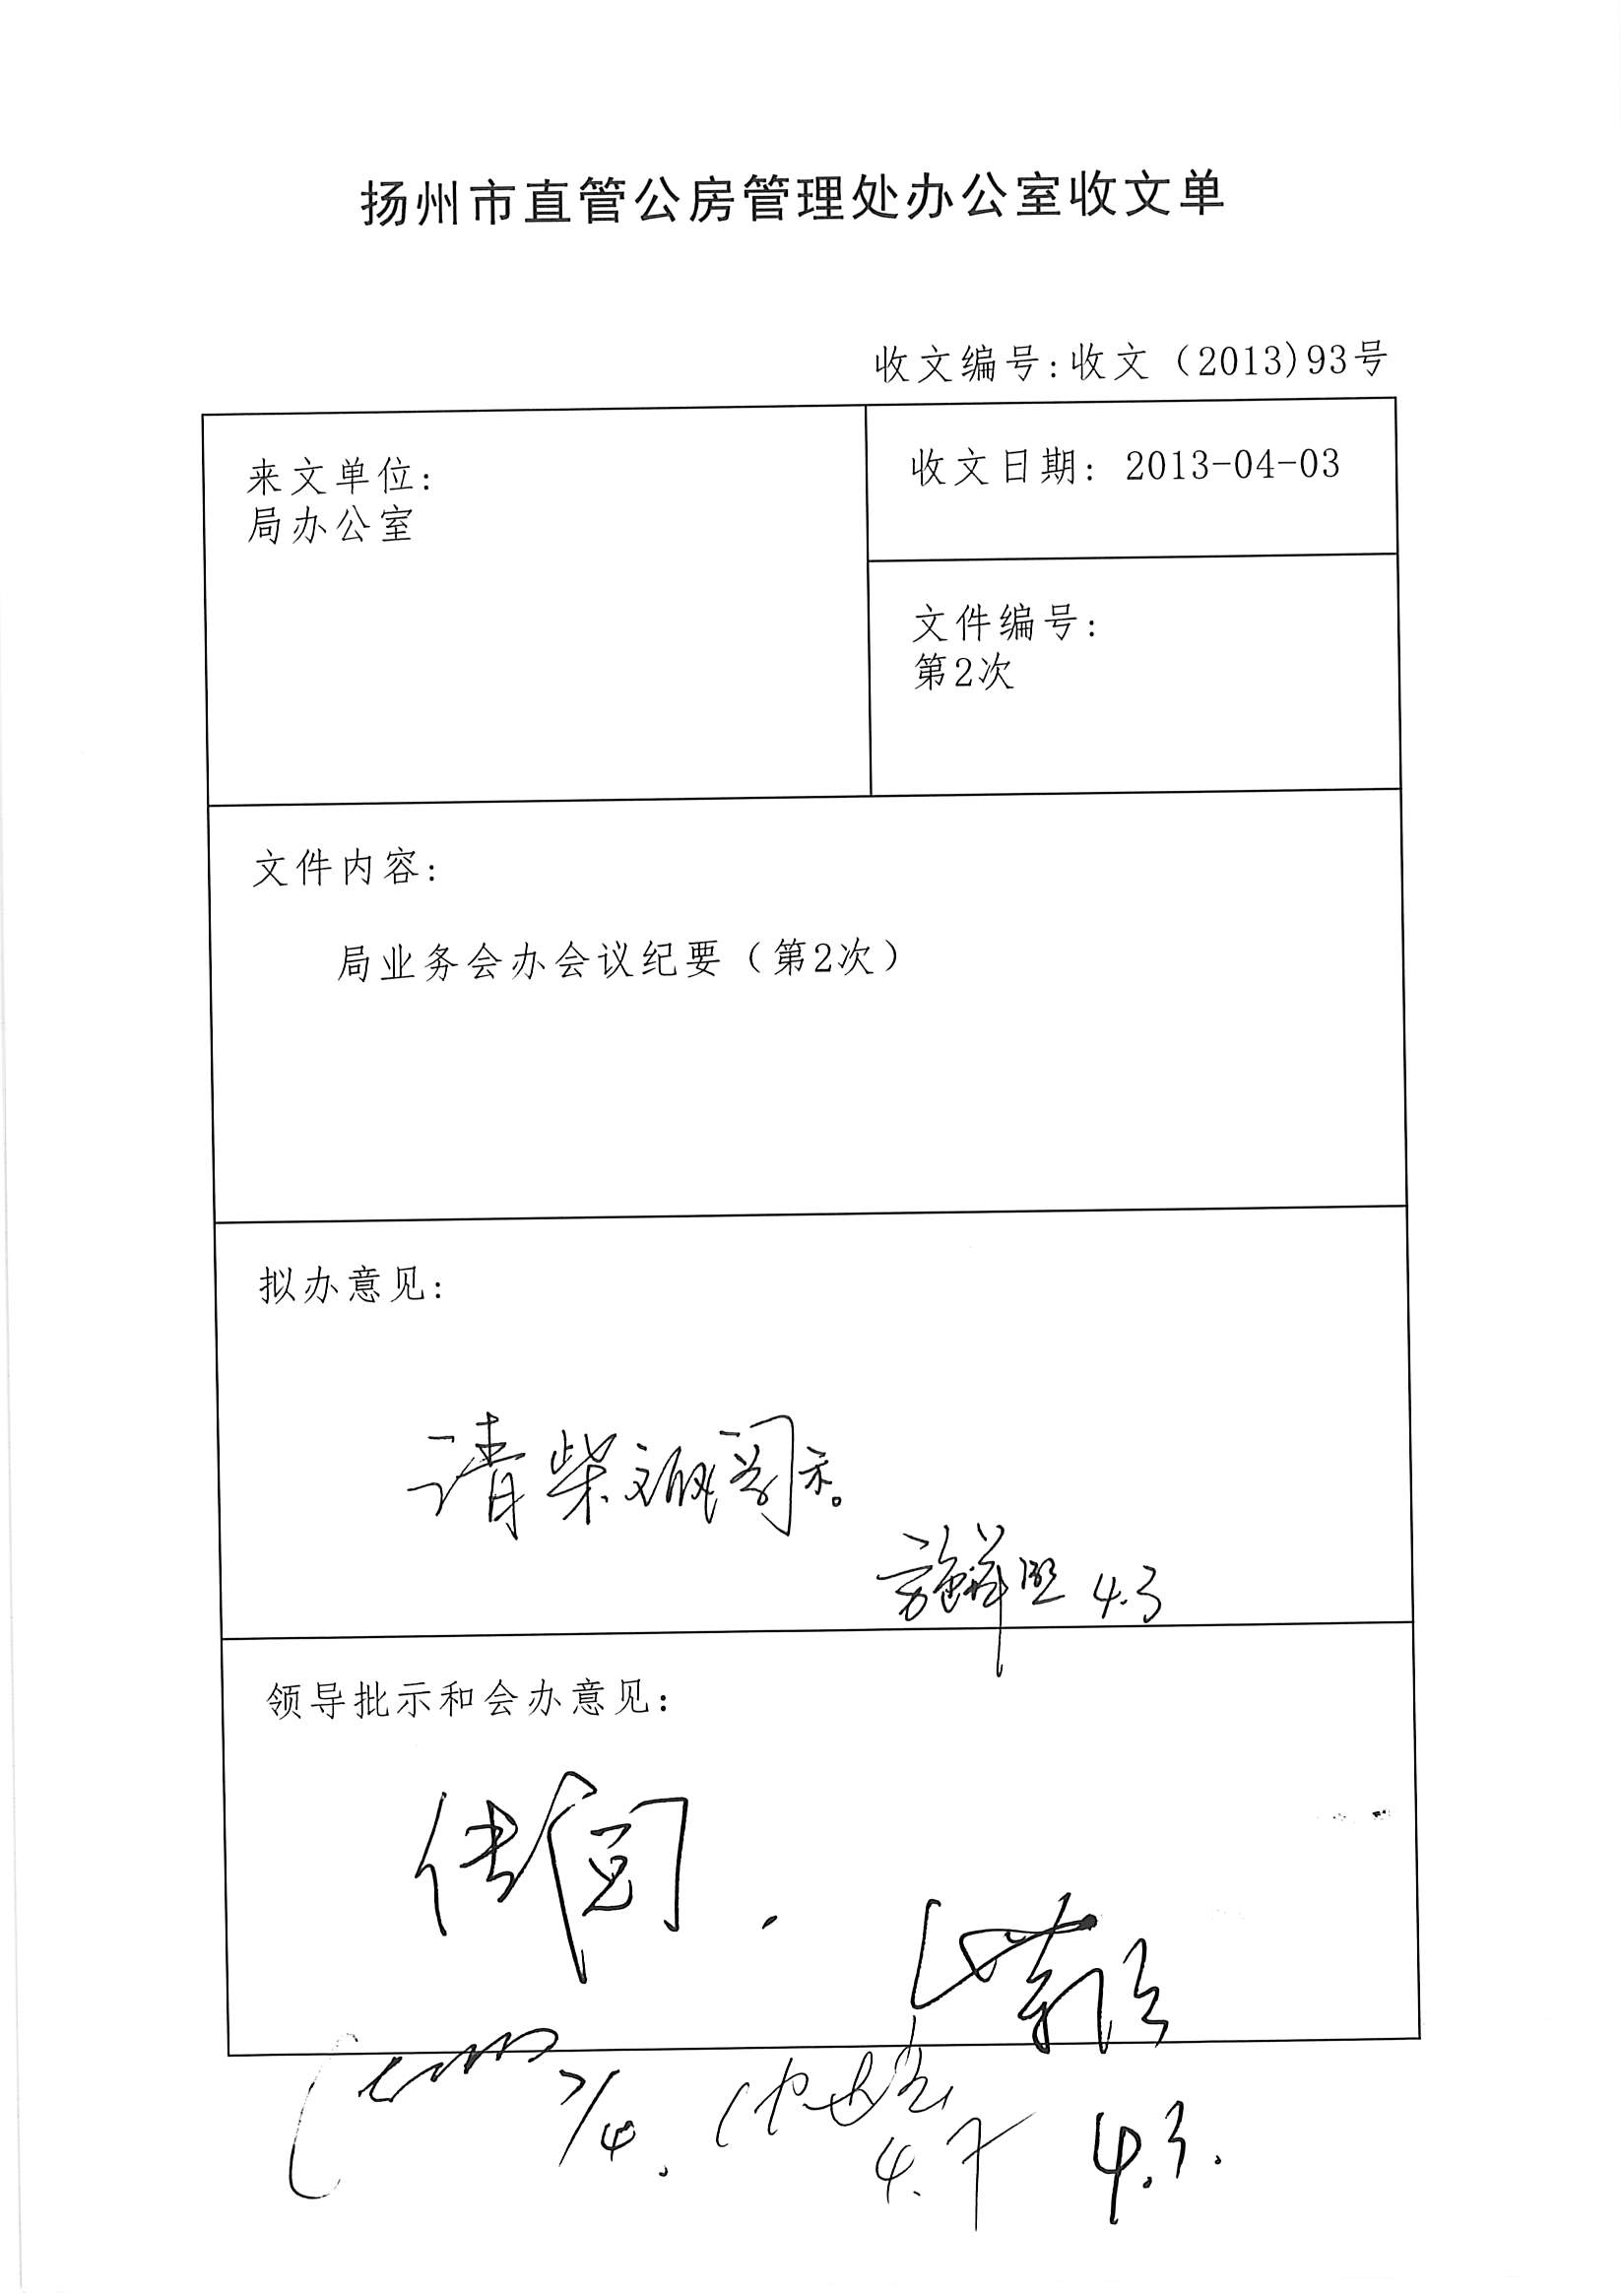 扬州市直管公房管理处办公室收文单
收文编号:收文（2013)93号
来文单位:
局办公室
收文日期: 2013-04-03
文件编号:
第2次
文件内容:
局业务会办会议纪要（第2次）
拟办意见:
请柴 阅示。
4.3
领导批示和会办意见:
传阅.
7/4.
4.7
4.3.